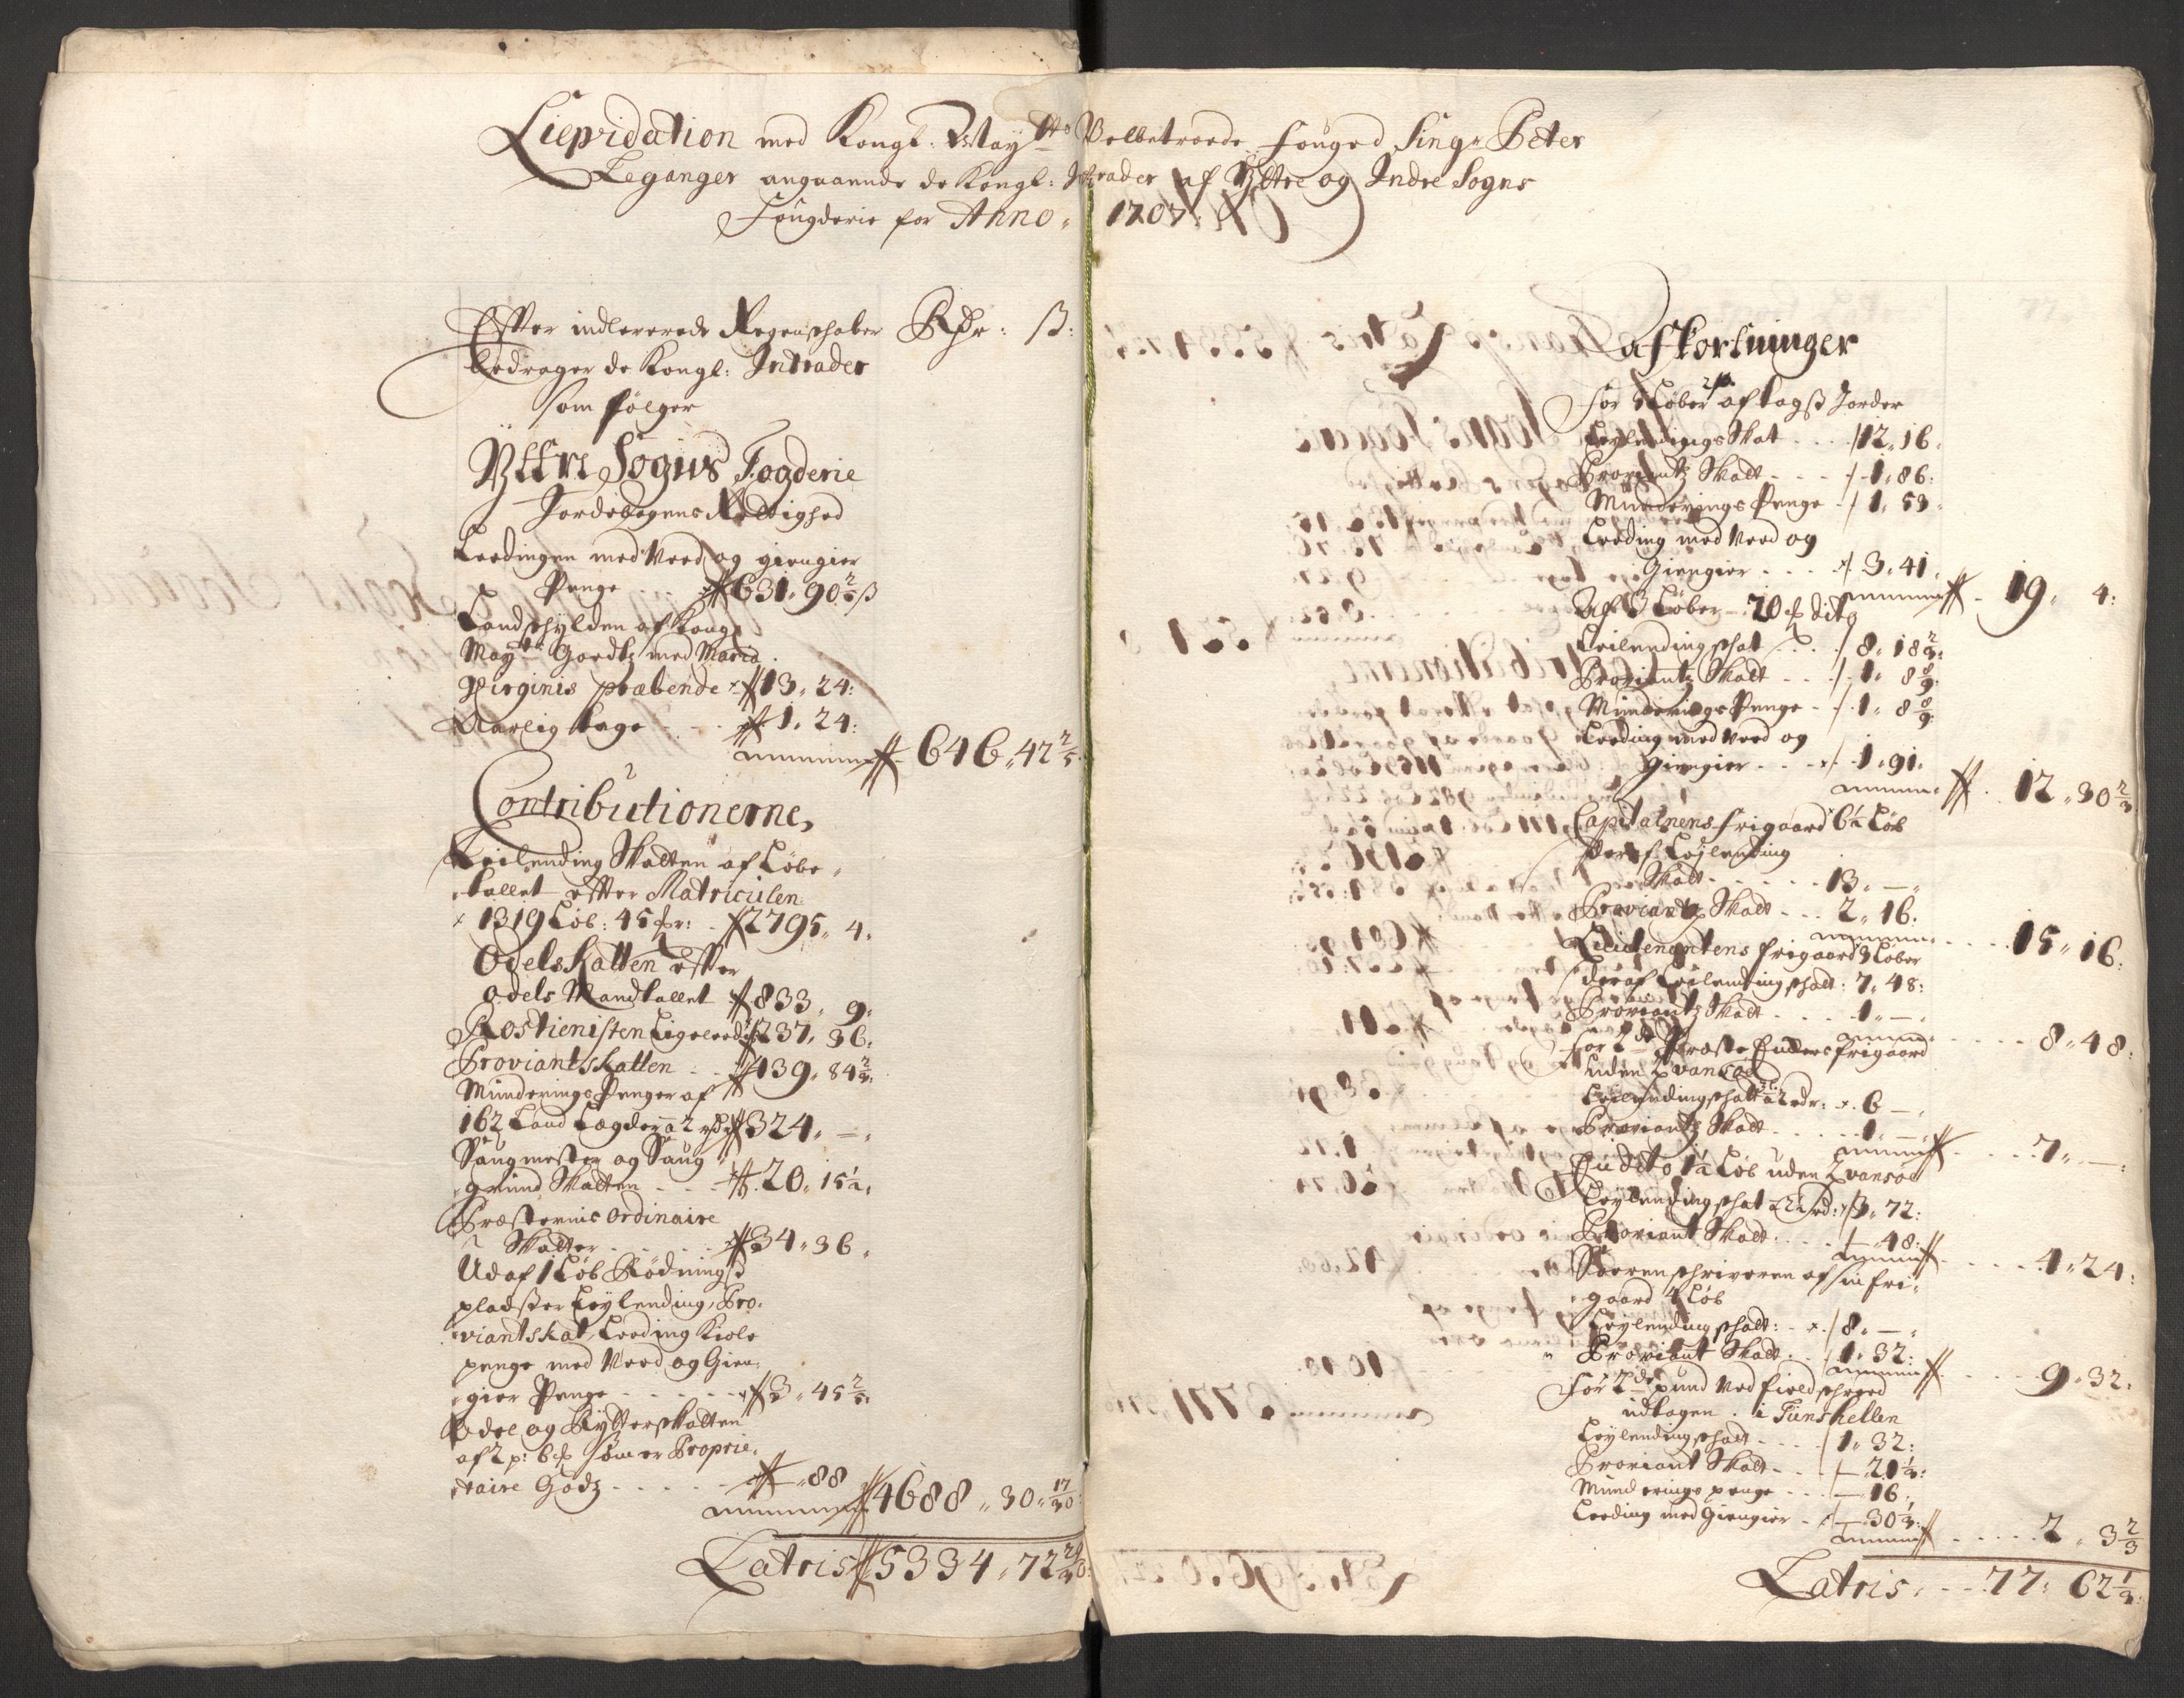 Liqvidation med Kongl: May:tts Velbetroede Fouged Sing:r Peter
Leganger angaaende de Kongl: Intrader af Yttre og Indre Sogns
Fougderie for Anno 1707:
Effter indleverede Regenschaber Rdr: ß:
bedrager de Kongl: Intrader
som følger
Yttre Sogns Fogderie
Jordebogens Rettighed
Leedingen med Veed og giengier
Penge 631„ 90 2/5 ß
Landschylden af Kongl
May:tts Goedtz med Maria
Virginis præbende 13„ 24:
Aarlig tage 1„ 24:
646„ 42 2/5
Contributionerne,
Leilending Skatten af Løbe„
tallet effter Matriculen
1319 Løb: 45 mr: 2795„ 4„
Odels Katten effter
odels Mandtallet 833„ 9„
Rostienisten Ligeleedis 237„ 36„
Proviantskatten 439„ 84 2/3:
Munderings Penger af
162 Land Lægder a 2 rdr 324„ —„
Saugmester og Saug
grund Skatten 20„ 15 1/2„
Præsternis ordinaire
Skatter 34„ 36„
Ud af 1 Løb Rødnings
pladster Leylending, Pro„
viantskat, Leeding Kiøle
penge med Veed og Gien„
gier Penge 3„ 45 2/5:
Odel og Rytterskatten
af 2 p: 6 mrk som er Proprie„
taire Godz „88
4688„ 30„ 17/30:
Latris 5334„ 72 29/30:
Afkortninger
For Løber aftagß Jorder
Leylendings Skat 12„ 16„
Proviantz Skatt 1„ 86:
Munderings Penge 1„ 53
Leeding med Veed og
Giengier 3„ 41„
19„ 4:
Af 3 Løber 20 mrk dito
Leilendingschat 8„ 18 2/3:
Proviantz Skatt 1„ 8 8/9
Munderings Penge 1„ 8 8/9:
Leeding med Veed og
Giengier 1„ 91„
12„ 30 2/3
Capitainens frigaard 6 1/2 Løb
deraf Leylending
Skatt 13„ —„
Proviantz Skatt 2„ 16.
15„ 16:
Leutenantens frigaard 3 Løber
deraf Leilendingschatt: 7„ 48:
Proviantz Skatt 1„ —„
8„ 48:
For 2de Præste Enckers frigaard
uden qvansøe
Leilendingschatt a 2 rdr: 6 —„
Proviantz Skatt 1„ —„
7„ —:
En dito 1 1/2 Løb uden qvansøe
Leylendingschat a 2 1/2 rd: 3„ 72:
Proviant Skatt: — 48:
4„ 24:
Soerenschriveren af sin fri„
gaard 4 Løb
Leylendingschatt: 8„ —„
Proviant Skatt 1„ 32:
9„ 32:
For 2de pund Ved fieldschreed
udtagen i Tunshellen
Leylendingschatt 1„ 32:
Proviant Skatt — 21 1/3:
Munderings penge — 16„
Leeding med Giengier — 30 1/3:
2„ 3 2/3
Latris 77„ 62 1/3: